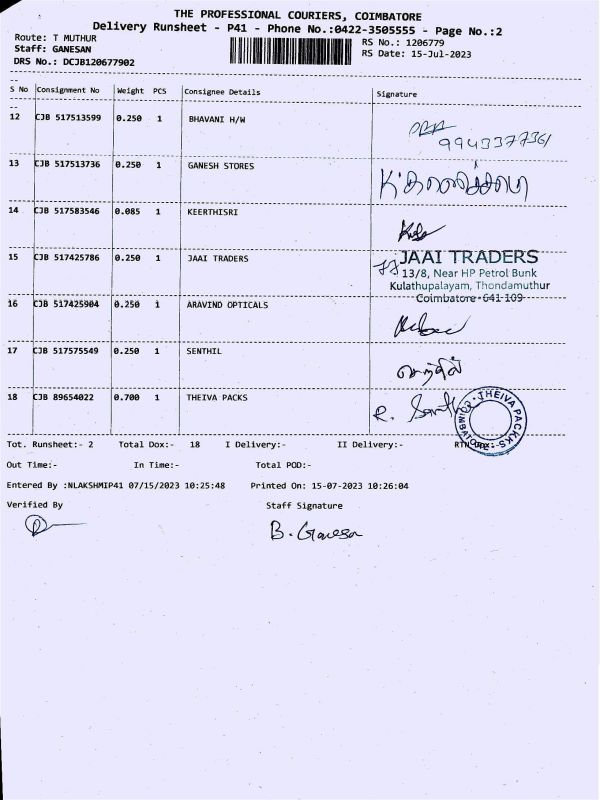 THE PROFESSIONAL COURIERS, COIMBATORE
Delivery Runsheet - P41 - Phone No.:0422-3505555 - Page No.:2
Route: T MUTHUR
RS No.: 1206779
Staff: GANESAN
RS Date: 15-Jul-2023
DRS No.: DCJB120677902
S No Consignment No Weight PCS Consignee Details Signature
12 CJB 517513599 0.250 1 BHAVANI H/W
9943377361
13 CJB 517513736 0.250 1 GANESH STORES
14 CJB 517583546 0.085 1 KEERTHISRI
15 CJB 517425786 0.250 1 JAAI TRADERS
JAAI TRADERS
13/8, Near HP Petrol Bunk
Kulathupalayam, Thondamuthur
Coimbatore - 641 109
16 CJB 517425904 0.250 1 ARAVIND OPTICALS
17 CJB 517575549 0.250 1 SENTHIL
செந்தில்
18 CJB 89654022 0.700 1 THEIVA PACKS
R.
THEIVA PACKS
Tot. Runsheet:- 2 Total Dox:- 18 I Delivery:- II Delivery:-
Out Time:- In Time:- Total POD:-
Entered By :NLAKSHMIP41 07/15/2023 10:25:48 Printed On: 15-07-2023 10:26:04
Verified By Staff Signature
B. Ganesan